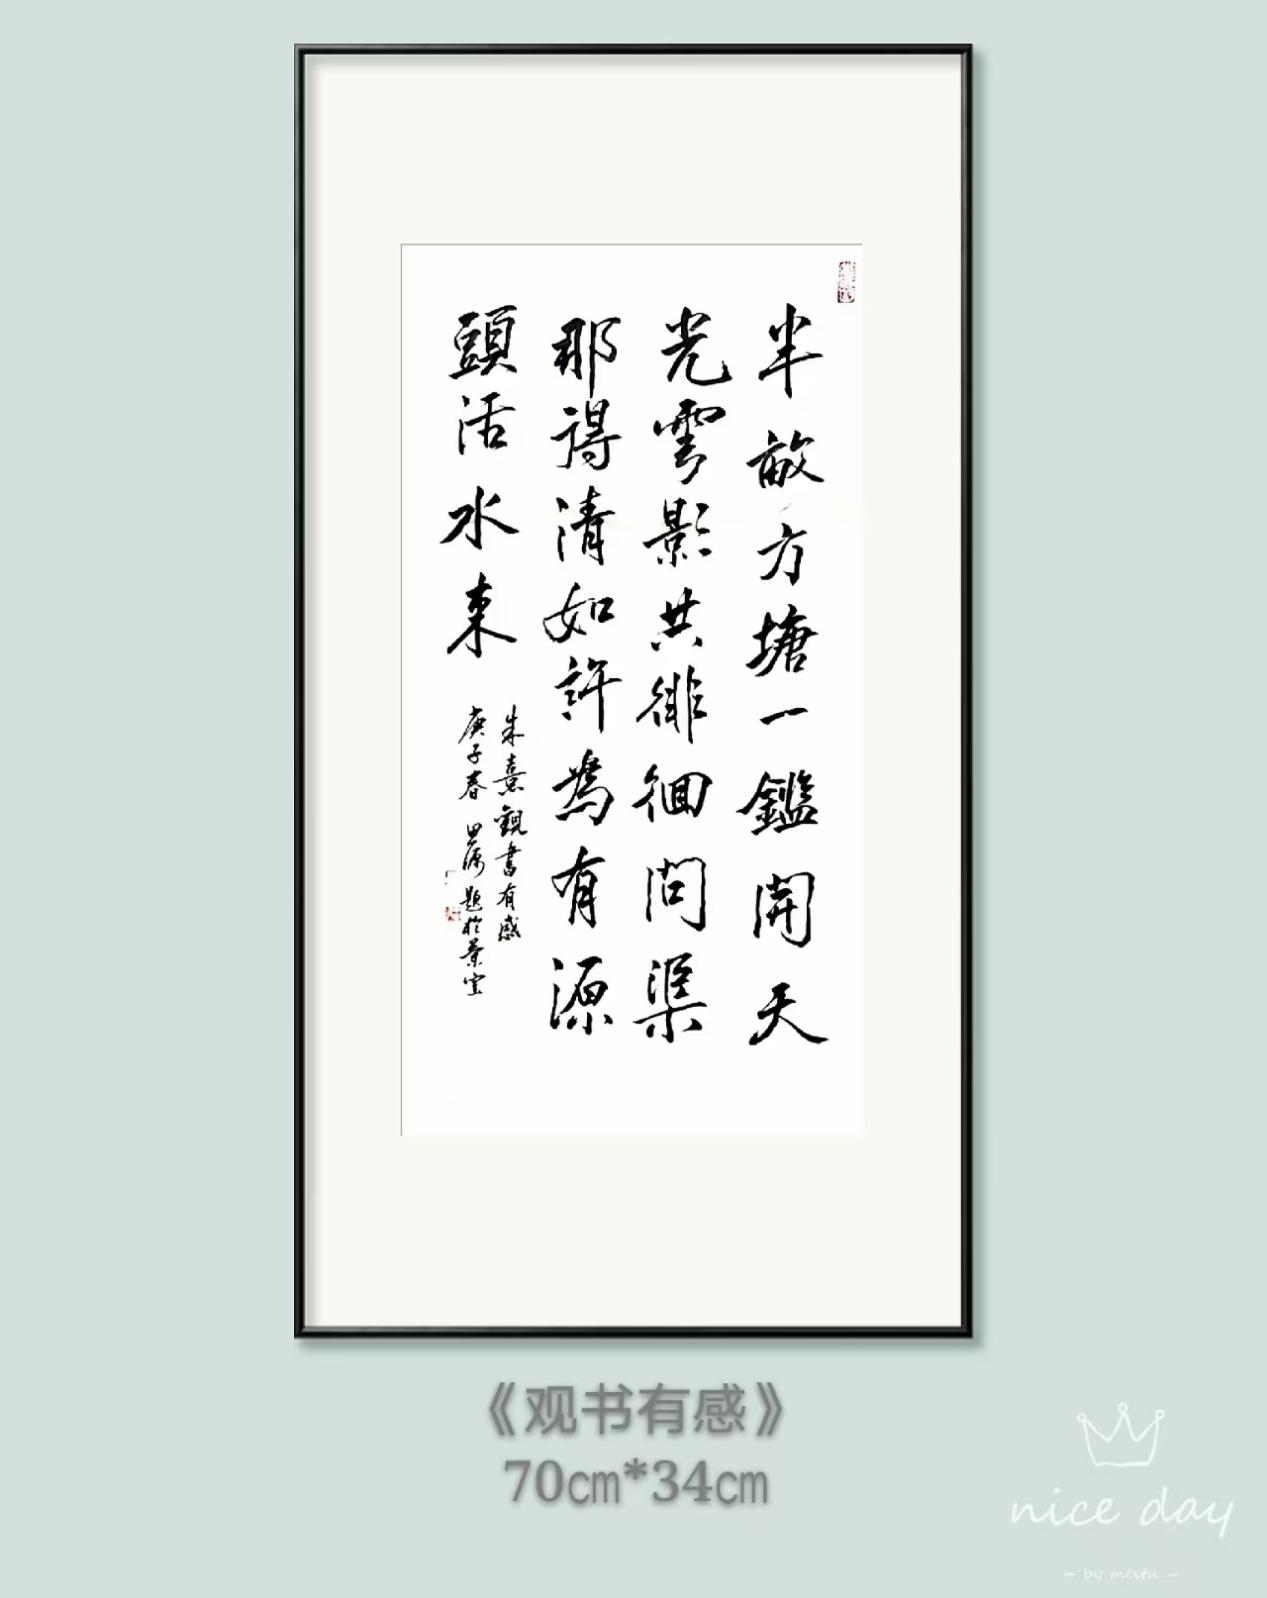 半畝方塘一鑑開天
光雲影共徘徊問渠
那得清如許為有源
頭活水來
朱熹觀書有感
庚子春 田源題於景堂
《观书有感》
70cm*34cm
nice day
- by meitu -